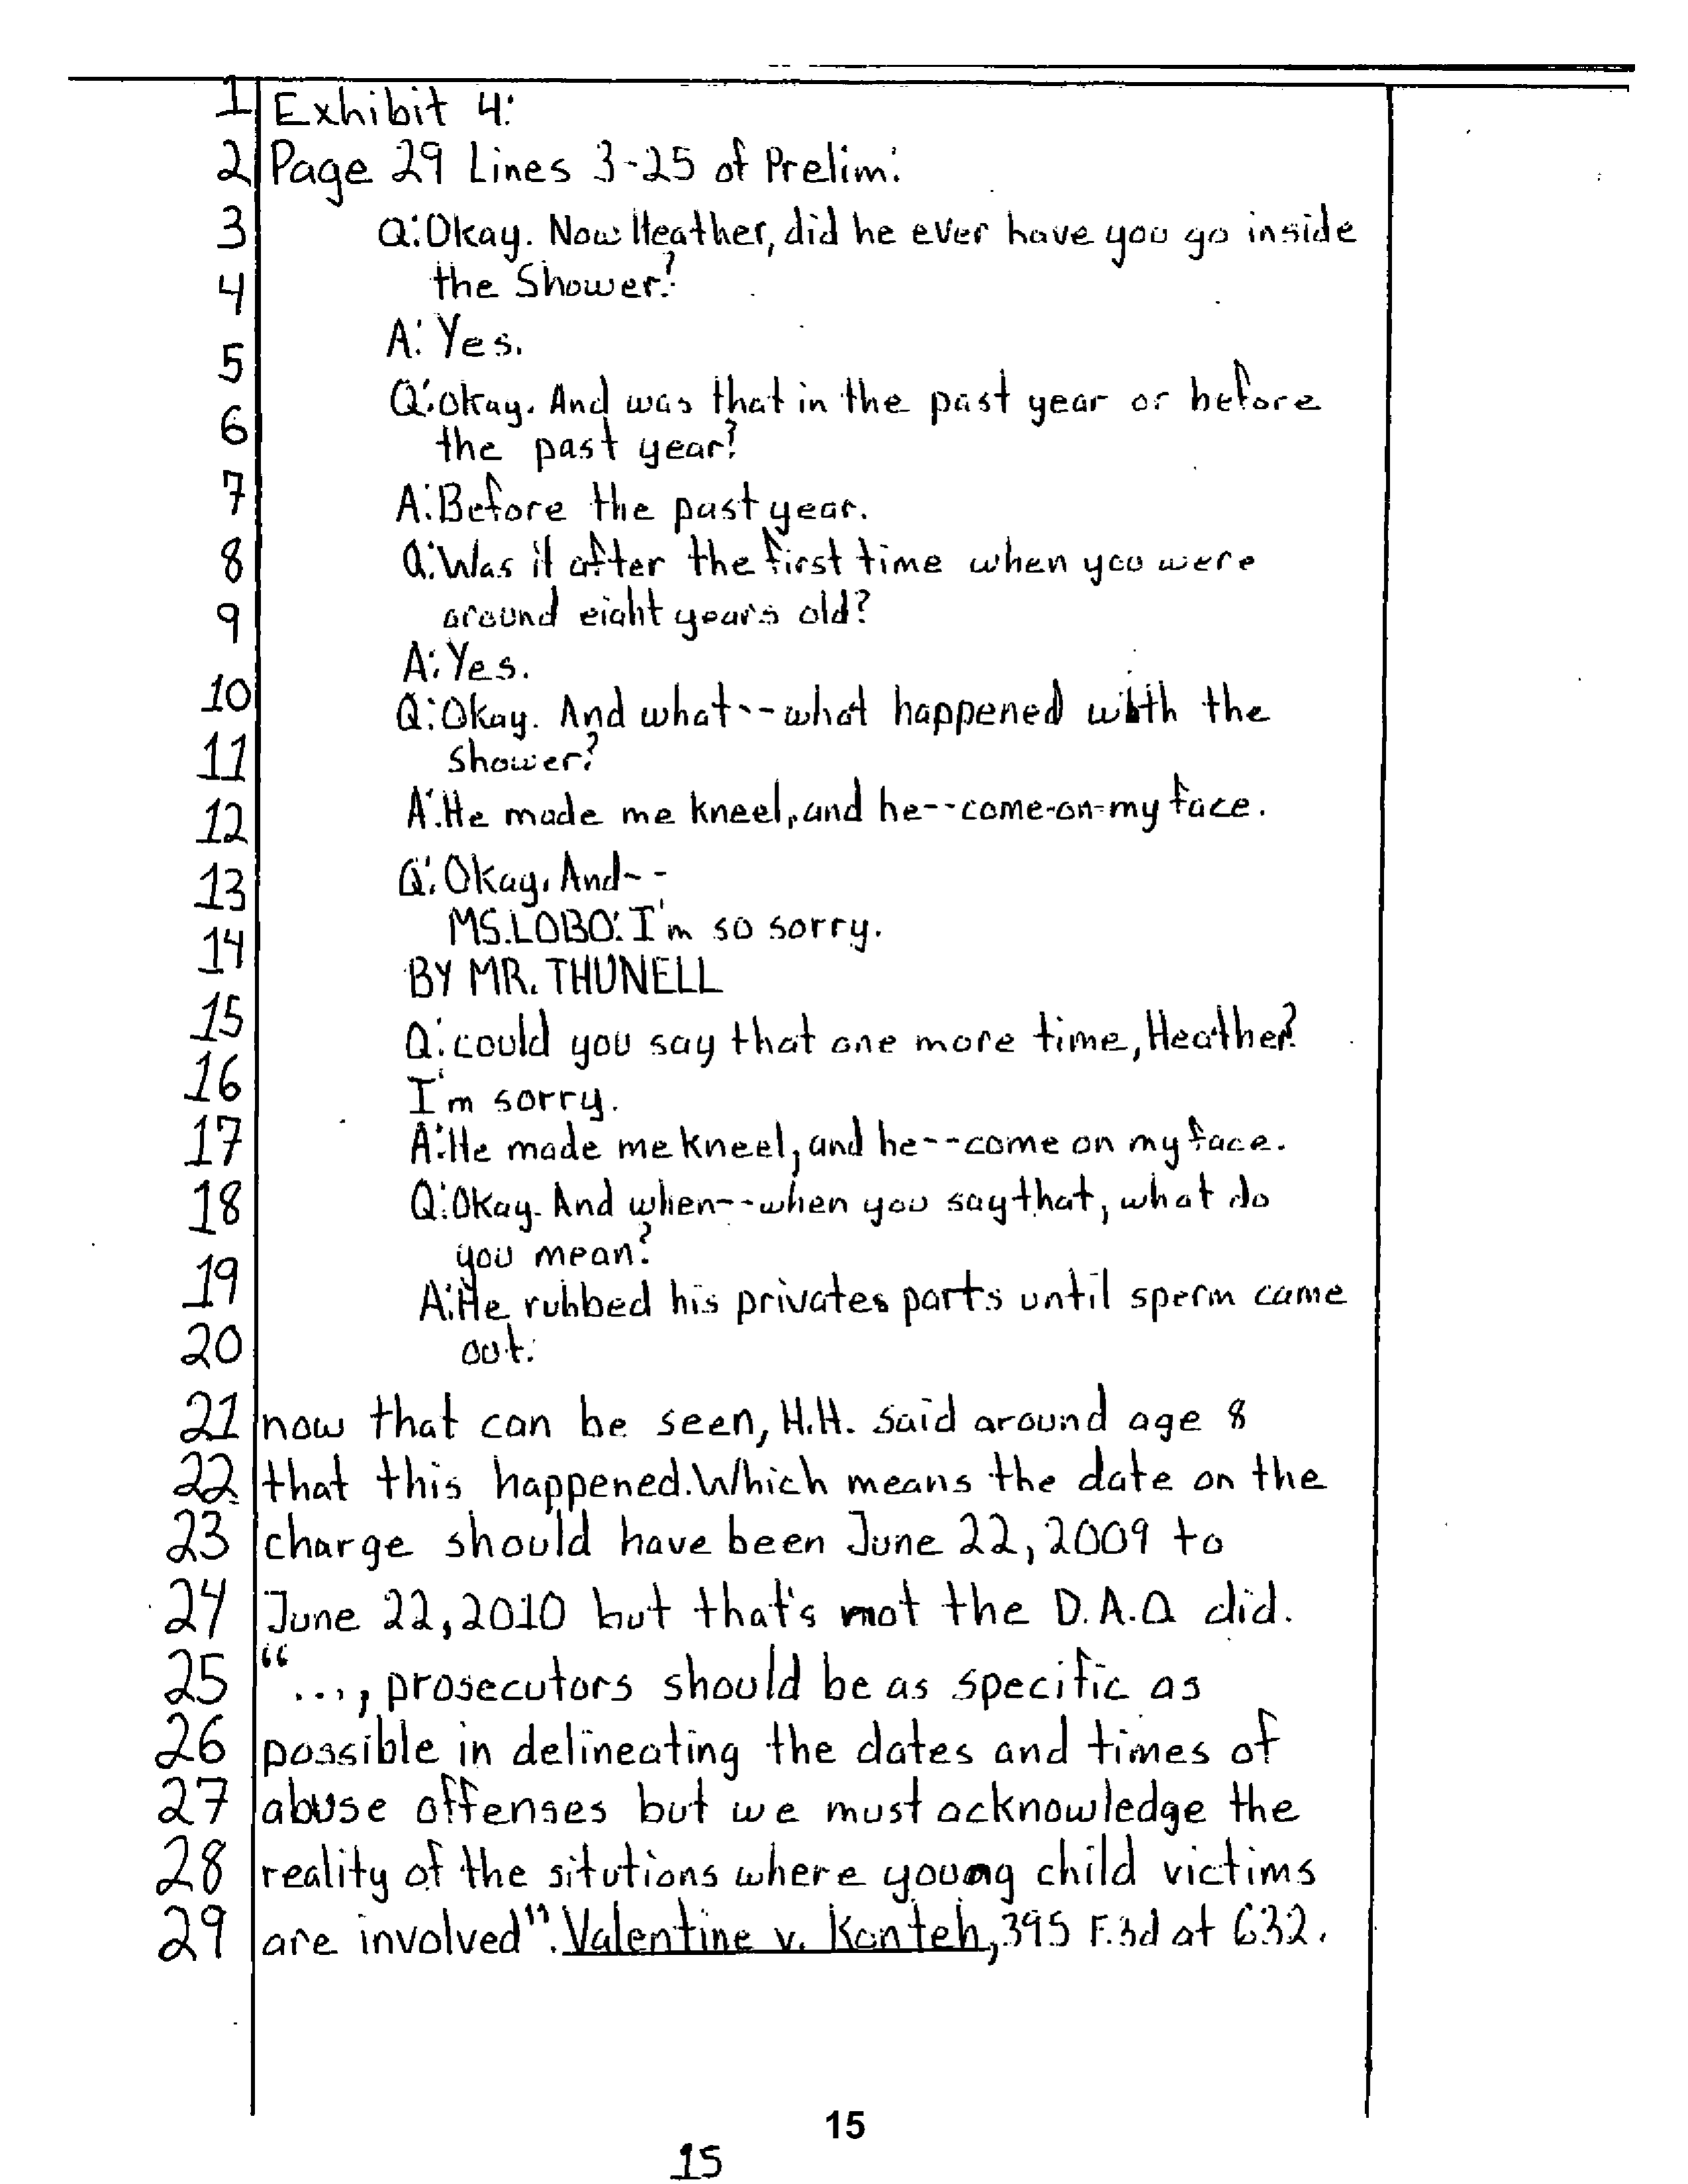 1 Exhibit 4:
2 Page 29 Lines 3-25 of Prelim:
3 Q: Okay. Now Heather, did he ever have you go inside
4 the Shower?
5 A: Yes.
6 Q: Okay. And was that in the past year or before
the past year?
7 A: Before the past year.
8 Q: Was it after the first time when you were
9 around eight years old?
A: Yes.
10 Q: Okay. And what--what happened with the
11 Shower?
12 A: He made me kneel, and he--come-on-my face.
13 Q: Okay. And--
14 MS. LOBO: I'm so sorry.
BY MR. THUNELL
15 Q: could you say that one more time, Heather?
16 I'm sorry.
17 A: He made me kneel, and he--come on my face.
18 Q: Okay. And when--when you say that, what do
19 you mean?
A: He rubbed his privates parts until sperm came
20 out.
21 now that can be seen, H.H. Said around age 8
22 that this happened. Which means the date on the
23 charge should have been June 22, 2009 to
24 June 22, 2010 but that's not the D.A.O did.
25 “..., prosecutors should be as specific as
26 possible in delineating the dates and times of
27 abuse offenses but we must acknowledge the
28 reality of the situtions where young child victims
29 are involved”. Valentine v. Konteh, 395 F.3d at 632.
15
15